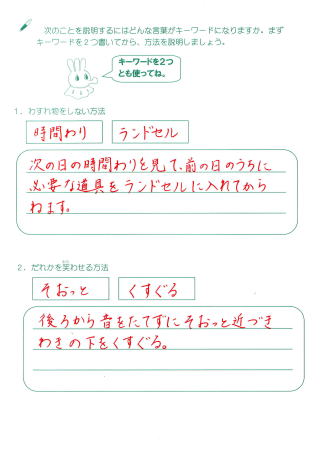 次のことを説明するにはどんな言葉がキーワードになりますか。まず
キーワードを２つ書いてから、方法を説明しましょう。
キーワードを２つ
とも使ってね。
１．わすれ物をしない方法
時間わり
ランドセル
次の日の時間わりを見て、前の日のうちに
必要な道具をランドセルに入れてから
ねます。
２．だれかを笑わせる方法
そおっと
くすぐる
後ろから音をたてずにそおっと近づき
わきの下をくすぐる。